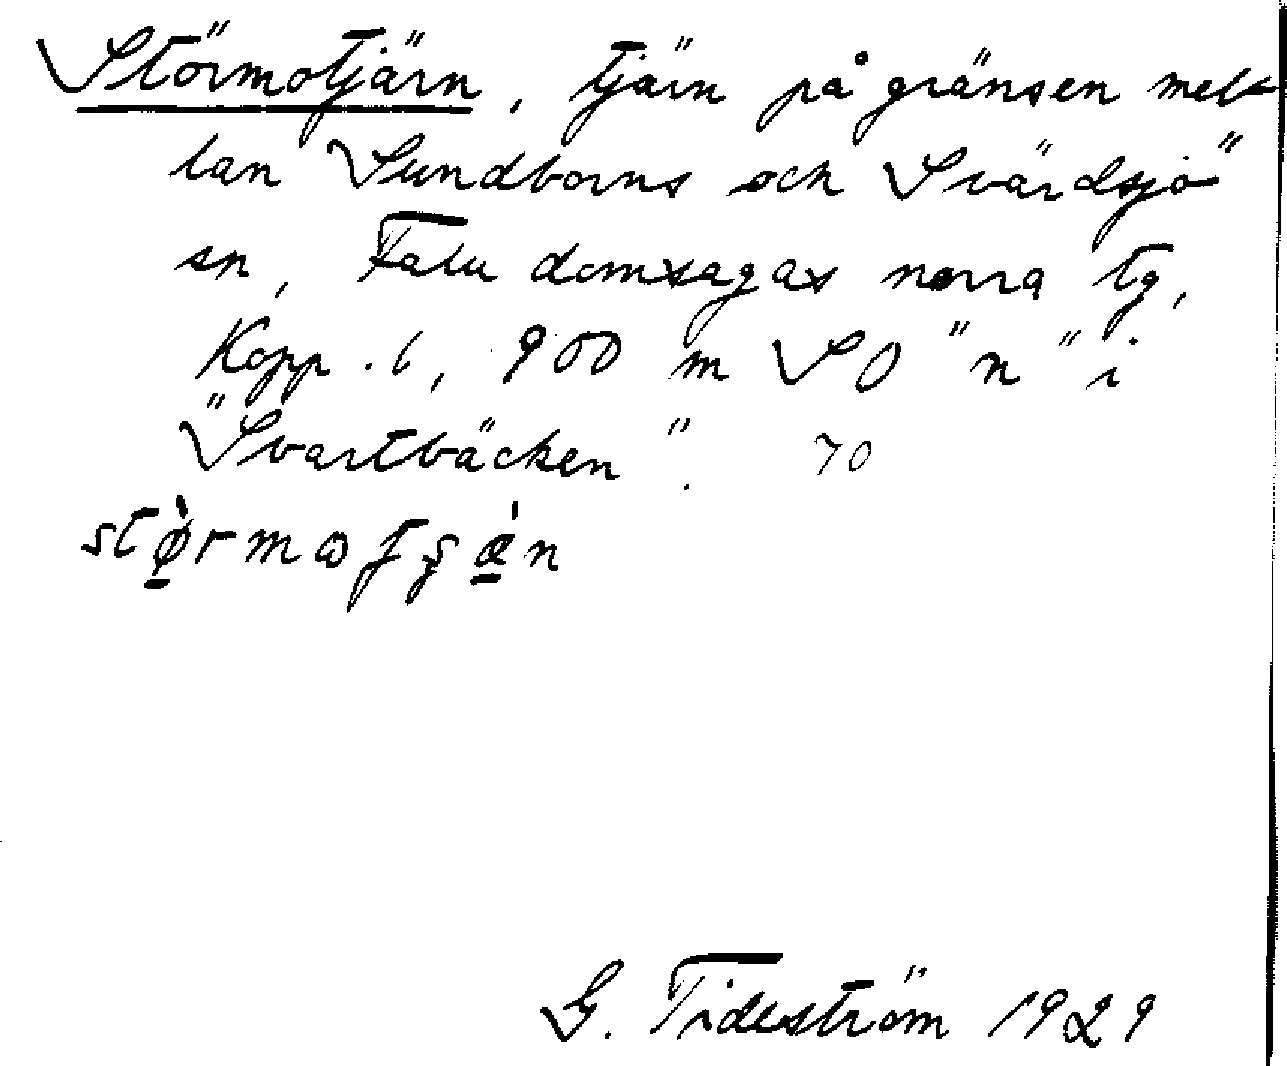 Störmotjärn, tjärn på gränsen mel-
lan Sundborns och Svärdsjö
sn, Falu domsagas norra tg,
Kopp. l, 900 m SO "n" i
"Svartbäcken". 70
G. Tideström 1929